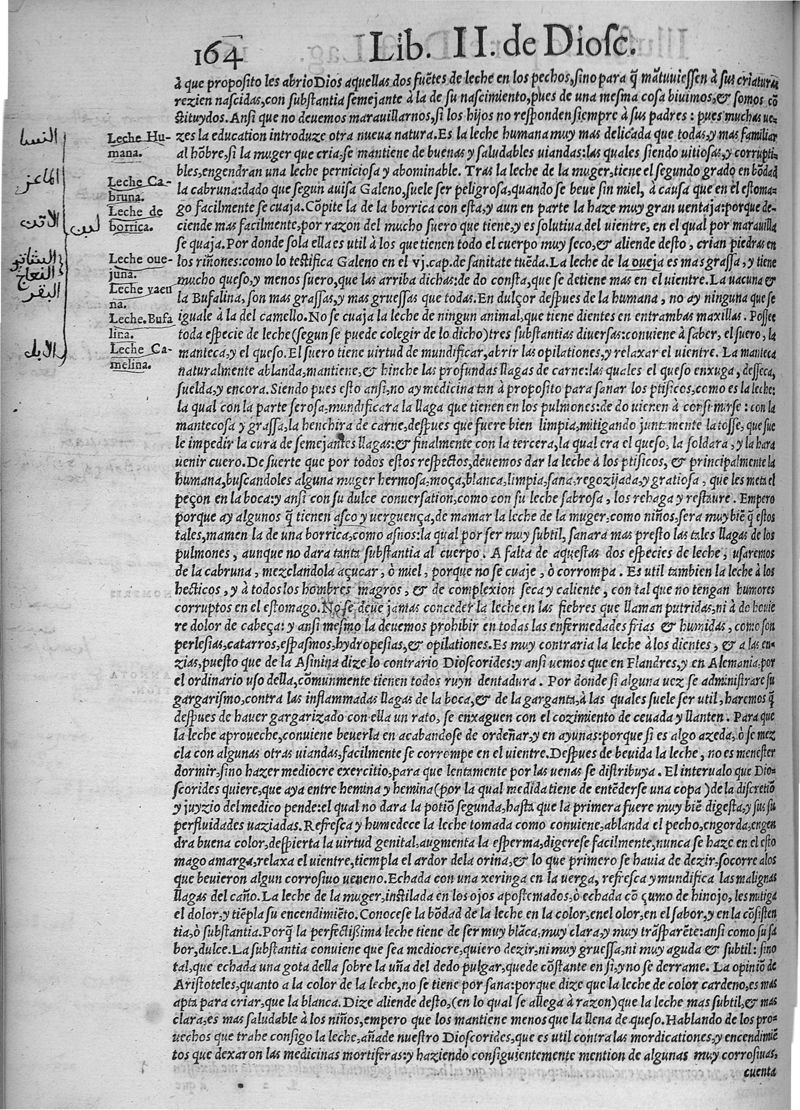 164 Lib. II. de Diosc.
à que proposito les abrio Dios aquellas dos fuẽtes de leche en los pechos, sino para q̃ mãtuviessen à sus criaturas
rezien nascidas, con substantia semejante à la de su nascimiento, pues de una mesma cosa bivimos, & somos cõ
stituydos. Ansi que no devemos maravillarnos, si los hijos no responden siempre à sus padres: pues muchas ve-
zes la education introduze otra nueva natura. Es la leche humana muy mas delicada que todas, y mas familiar
al hõbre, si la muger que cria, se mantiene de buenas y saludables viandas: las quales siendo vitiosas, y corrupti-
bles, engendran una leche perniciosa y abominable. Tras la leche de la muger, tiene el segundo grado en bõdad
la cabruna: dado que segun avisa Galeno, suele ser peligrosa, quando se beve sin miel, à causa que en el estoma-
go facilmente se cuaja. Cõpite la de la borrica con esta, y aun en parte la haze muy gran ventaja: porque de-
ciende mas facilmente, por razon del mucho suero que tiene, y es solutiva del vientre, en el qual por maravilla
se quaja. Por donde sola ella es util à los que tienen todo el cuerpo muy seco, & aliende desto, crian piedras en
los riñones: como lo testifica Galeno en el vj. cap. de sanitate tuẽda. La leche de la oveja es mas grassa, y tiene
mucho queso, y menos suero, que las arriba dichas: de do consta, que se detiene mas en el vientre. La vacuna &
la Bufalina, son mas grassas, y mas gruessas que todas. En dulçor despues de la humana, no ay ninguna que se
iguale à la del camello. No se cuaja la leche de ningun animal, que tiene dientes en entrambas maxillas. Possee
toda especie de leche (segun se puede colegir de lo dicho) tres substantias diversas: conviene à saber, el suero, la
manteca, y el queso. El suero tiene virtud de mundificar, abrir las opilationes, y relaxar el vientre. La manteca
naturalmente ablanda, mantiene, & hinche las profundas llagas de carne: las quales el queso enxuga, desseca,
suelda, y encora. Siendo pues esto ansi, no ay medicina tan à proposito para sanar los ptisicos, como es la leche:
la qual con la parte serosa, mundificara la llaga que tienen en los pulmones: de do vienen à consumirse: con la
mantecosa y grassa, la henchira de carne, despues que fuere bien limpia, mitigando juntamente la tosse, que sue
le impedir la cura de semejantes llagas: & finalmente con la tercera, la qual era el queso, la soldara, y la hara
venir cuero. De suerte que por todos estos respectos, devemos dar la leche à los ptisicos, & principalmente la
humana, buscandoles alguna muger hermosa, moça, blanca, limpia, sana, regozijada, y gratiosa, que les meta el
peçon en la boca: y ansi con su dulce conversation, como con su leche sabrosa, los rehaga y restaure. Empero
porque ay algunos q̃ tienen asco y verguença, de mamar la leche de la muger, como niños, sera muy biẽ q̃ estos
tales, mamen la de una borrica, como asnos: la qual por ser muy subtil, sanara mas presto las tales llagas de los
pulmones, aunque no dara tanta substantia al cuerpo. A falta de aquestas dos especies de leche, usaremos
de la cabruna, mezclandola açucar, ò miel, porque no se cuaje, ò corrompa. Es util tambien la leche à los
hecticos, y à todos los hombres magros, & de complexion seca y caliente, con tal que no tengan humores
corruptos en el estomago. No se deve jamas conceder la leche en las fiebres que llaman putridas, ni à do hovie
re dolor de cabeça: y ansi mesmo la devemos prohibir en todas las enfermedades frias & humidas, como son
perlesias, catarros, espasmos, hydropesias, & opilationes. Es muy contraria la leche à los dientes, & a las en-
zias, puesto que de la Asinina dize lo contrario Dioscorides: y ansi vemos que en Flandres, y en Alemania, por
el ordinario uso della, cõmunmente tienen todos ruyn dentadura. Por donde si alguna vez se administrare su
gargarismo, contra las inflammadas llagas de la boca, & de la garganta, à las quales suele ser util, haremos q̃
despues de haver gargarizado con ella un rato, se enxaguen con el cozimiento de cevada y llanten. Para que
la leche aproveche, conviene beverla en acabandose de ordeñar, y en ayunas: porque si es algo azeda, ò se mez
cla con algunas otras viandas, facilmente se corrompe en el vientre. Despues de bevida la leche, no es menester
dormir, sino hazer mediocre exercitio, para que lentamente por las venas se distribuya. El intervalo que Dio-
scorides quiere, que aya entre hemina y hemina (por la qual medida tiene de entẽderse una copa) de la discretiõ
y juyzio del medico pende: el qual no dara la potiõ segunda, hasta que la primera fuere muy biẽ digesta, y sus su
perfluidades vaziadas. Refresca y humedece la leche tomada como conviene, ablanda el pecho, engorda, engen
dra buena color, despierta la virtud genital, augmenta la esperma, digerese facilmente, nunca se haze en el esto
mago amarga, relaxa el vientre, tiempla el ardor de la orina, & lo que primero se havia de dezir, socorre alos
que bevieron algun corrosivo veneno. Echada con una xeringa en la verga, refresca y mundifica las malignas
llagas del caño. La leche de la muger, instilada en los ojos apostemados, ò echada cõ çumo de hinojo, les mitiga
el dolor, y tẽpla su encendimiẽto. Conocese la bõdad de la leche en la color, en el olor, en el sabor, y en la cõsisten
tia, ò substantia. Porq̃ la perfectissima leche tiene de ser muy blãca, muy clara, y muy trãsparẽte: ansi como su sa
bor, dulce. La substantia conviene que sea mediocre, quiero dezir, ni muy gruessa, ni muy aguda & subtil: sino
tal, que echada una gota della sobre la uña del dedo pulgar, quede cõstante en si, y no se derrame. La opiniõ de
Aristoteles, quanto a la color de la leche, no se tiene por sana: porque dize que la leche de color cardeno, es mas
apta para criar, que la blanca. Dize aliende desto, (en lo qual se allega à razon) que la leche mas subtil, & mas
clara, es mas saludable à los niños, empero que los mantiene menos que la llena de queso. Hablando de los pro-
vechos que trahe consigo la leche, añade nuestro Dioscorides, que es util contra las mordicationes, y encendimiẽ
tos que dexaron las medicinas mortiferas: y haziendo consiguientemente mention de algunas muy corrosivas,
cuenta
Leche Hu-
mana.
Leche Ca-
bruna.
Leche de
borrica.
Leche ove-
juna.
Leche vacu
na.
Leche. Bufa
lina.
Leche Ca-
melina.
لبن
النسا
الماعز
الاتن
النعاج
البقر
الابل